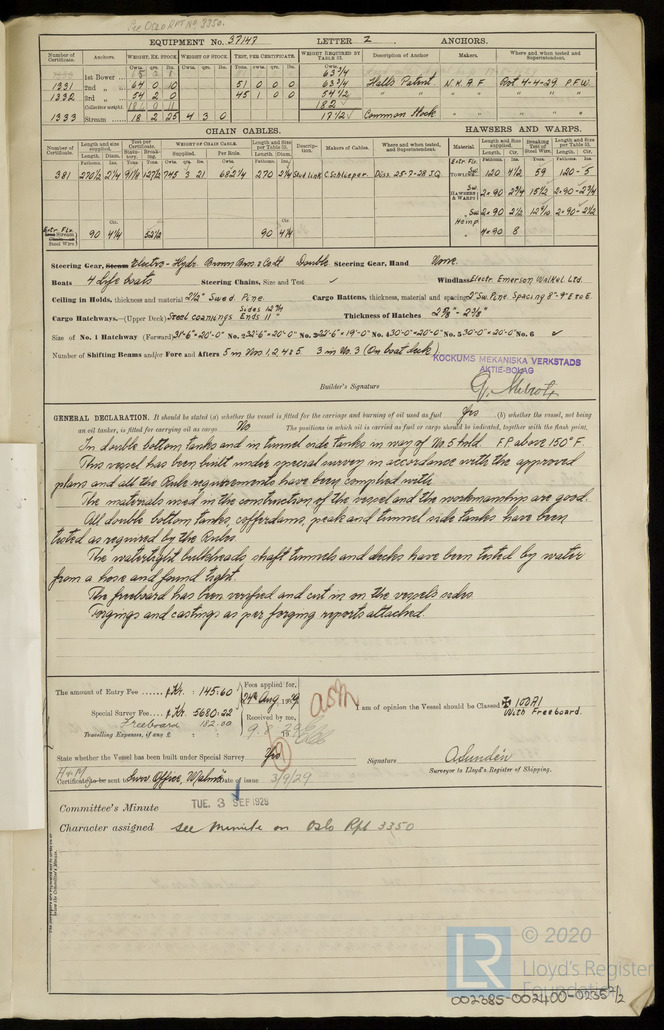 See Oslo Rpt No 3350.
EQUIPMENT No. 37147 LETTER Z ANCHORS.
Number of Certificate. Anchors. WEIGHT, EX. STOCK. WEIGHT OF STOCK. TEST, PER CERTIFICATE. WEIGHT REQUIRED BY TABLE 53. Description of Anchor Makers. Where and when tested and Superintendent.
Cwts. qrs. lbs. Cwts. qrs. lbs. Tons. Cwts. qrs. lbs. Cwts.
1st Bower 63 3/4
1331 2nd „ 64 0 10 51 0 0 0 63 3/4 Hall's Patent N.H.A.F. Brot 4-4-29 P.F.W.
1332 3rd „ 54 2 0 45 1 0 0 54 1/2 " " " " " "
Collective weight. 182
1333 Stream 18 2 25 4 3 0 17 1/2 Common Stock " " "
CHAIN CABLES. HAWSERS AND WARPS.
Number of Certificate. Length and size supplied. Test per Certificate. WEIGHT OF CHAIN CABLE. Length and Size per Table 53. Description. Makers of Cables. Where and when tested, and Superintendent. Material Length and Size supplied. Breaking Test of Steel Wire. Length and Size per Table 53.
Length. Diam. Statutory. Breaking. Supplied. Per Rule. Length. Diam. Length. Cir. Length. Cir.
381 270 1/2 2 1/4 91 1/8 127 1/2 745 3 21 682 1/4 270 2 1/4 Stud link C. Schlieper Düss. 25-7-28 J.Q. TOWLINE 120 4 1/2 59 120 - 5
HAWSERS & WARPS 2x90 2 3/4 15 1/2 2x90-2 3/4
2x90 2 1/2 2x90-2 1/2
Hemp
Extr. Flx. Stream Steel Wire 90 4 1/4 52 1/2 90 4 1/4 " 4x90 8
Steering Gear, Steam Electro-Hydr. Brown Bros & Co Ltd Double Steering Gear, Hand None.
Boats 4 Life boats Steering Chains, Size and Test ✓ Windlass Electr. Emerson Walker Ltd.
Ceiling in Holds, thickness and material 2 1/2" Swed. Pine. Cargo Battens, thickness, material and spacing 2" Sw. Pine. Spacing 8"-9" E to E.
Cargo Hatchways.—(Upper Deck) Steel coamings Sides 12 3/4 Ends 11" Thickness of Hatches 2 3/8" - 2 3/8"
Size of No. 1 Hatchway (Forward) 31'-6"x20'-0" No. 2 32'-6"x20'-0" No. 3 22'-6"x19'-0" No. 4 30'-0"x20'-0" No. 5 30'-0"x20'-0" No. 6 ✓
Number of Shifting Beams and/or Fore and Afters 5 in Nos 1, 2, 4 & 5 3 in No. 3 (On boat deck)
KOCKUMS MEKANISKA VERKSTADS
AKTIE-BOLAG
Builder's Signature
GENERAL DECLARATION. It should be stated (a) whether the vessel is fitted for the carriage and burning of oil used as fuel Yes (b) whether the vessel, not being
an oil tanker, is fitted for carrying oil as cargo No The positions in which oil is carried as fuel or cargo should be indicated, together with the flash point.
In double bottom tanks and in tunnel side tanks in way of No. 5 hold. F.P. above 150°F.
This vessel has been built under special survey in accordance with the approved
plans and all the Rule requirements have been complied with.
The materials used in the construction of the vessel and the workmanship are good.
All double bottom tanks, cofferdams, peak and tunnel side tanks have been
tested as required by the Rules.
The watertight bulkheads, shaft tunnels and decks have been tested by water
from a hose and found tight.
The freeboard has been verified and cut in on the vessels sides.
Forgings and castings as per forging reports attached.
The amount of Entry Fee ...... Kr. : 145.60 Fees applied for,
24th Aug 1929
Special Survey Fee .... Kr. 5680.22 Received by me,
Freeboard 182.00
Travelling Expenses, if any £ : : 9.8. 19
I am of opinion the Vessel should be Classed ✠ 100A1
With Freeboard.
State whether the Vessel has been built under Special Survey Yes Signature A. Sundén
Surveyor to Lloyd's Register of Shipping.
Certificate to be sent to Surv. Office, Malmö Date of issue 3/9/29
Committee's Minute TUE. 3 SEP 1929
Character assigned see minute on Oslo Rpt 3350
© 2020
LR
Lloyd's Register
Foundation
002385-002400-0235 2/2